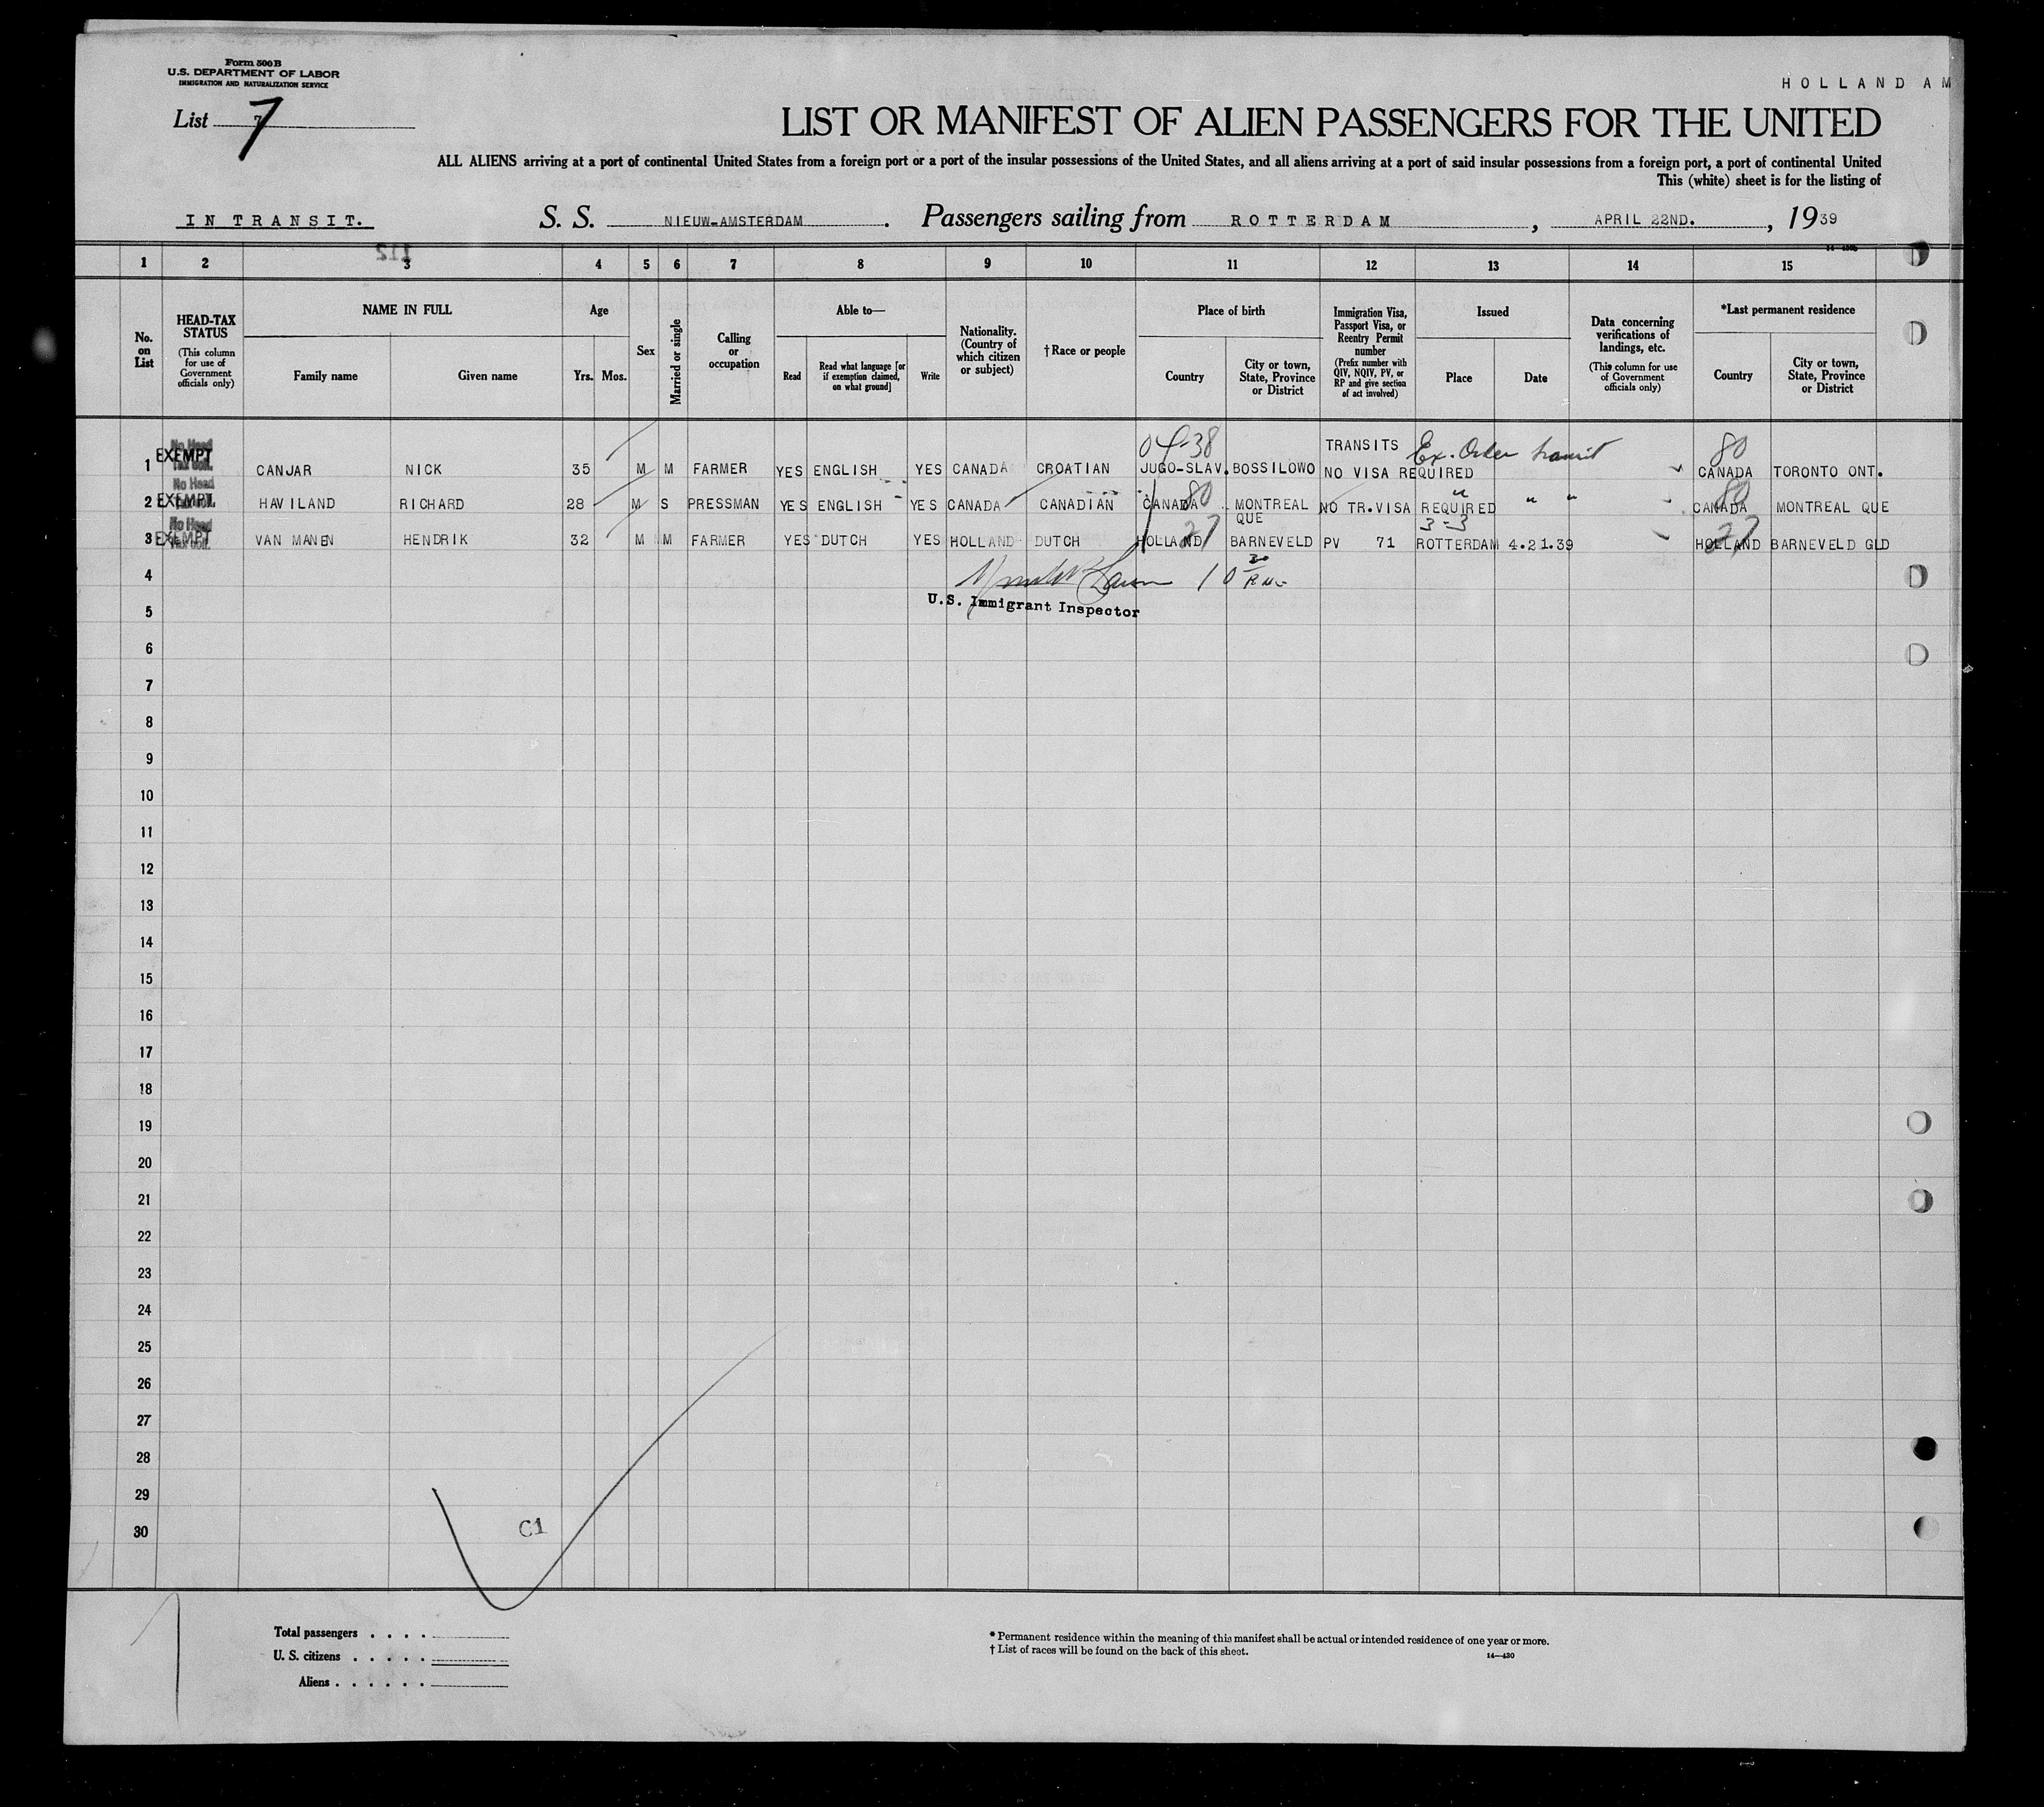 Form 500 B
U.S. DEPARTMENT OF LABOR
IMMIGRATION AND NATURALIZATION SERVICE
HOLLAND AM
List 7
LIST OR MANIFEST OF ALIEN PASSENGERS FOR THE UNITED
ALL ALIENS arriving at a port of continental United States from a foreign port or a port of the insular possessions of the United States, and all aliens arriving at a port of said insular possessions from a foreign port, a port of continental United
This (white) sheet is for the listing of
IN TRANSIT. S. S. NIEUW-AMSTERDAM. Passengers sailing from ROTTERDAM, APRIL 22ND., 1939
112
1 2 3 4 5 6 7 8 9 10 11 12 13 14 15
No. on List
HEAD-TAX STATUS (This column for use of Government officials only)
NAME IN FULL Family name Given name
Age Yrs. Mos.
Sex
Married or single
Calling or occupation
Able to— Read Read what language [or if exemption claimed, on what ground] Write
Nationality. (Country of which citizen or subject)
† Race or people
Place of birth Country City or town, State, Province or District
Immigration Visa, Passport Visa, or Reentry Permit number (Prefix number with QIV, NQIV, PV, or RP and give section of act involved)
Issued Place Date
Data concerning verifications of landings, etc. (This column for use of Government officials only)
*Last permanent residence Country City or town, State, Province or District
No Head 04-38 TRANSITS Ex. Order transit 80
1 EXEMPT CANJAR NICK 35 M M FARMER YES ENGLISH YES CANADA CROATIAN JUGO-SLAV. BOSSILOWO NO VISA REQUIRED CANADA TORONTO ONT.
No Head 80 " " " 80
2 EXEMPT HAVILAND RICHARD 28 M S PRESSMAN YES ENGLISH YES CANADA CANADIAN CANADA MONTREAL QUE NO TR.VISA REQUIRED CANADA MONTREAL QUE
No Head 27 3-3 27
3 EXEMPT VAN MANEN HENDRIK 32 M M FARMER YES DUTCH YES HOLLAND DUTCH HOLLAND BARNEVELD PV 71 ROTTERDAM 4.21.39 HOLLAND BARNEVELD GLD
4 10 30
U.S. Immigrant Inspector
5
6
7
8
9
10
11
12
13
14
15
16
17
18
19
20
21
22
23
24
25
26
27
28
29
30
C1
Total passengers . . . .
U. S. citizens . . . . .
Aliens . . . . . .
* Permanent residence within the meaning of this manifest shall be actual or intended residence of one year or more.
† List of races will be found on the back of this sheet.
14—430